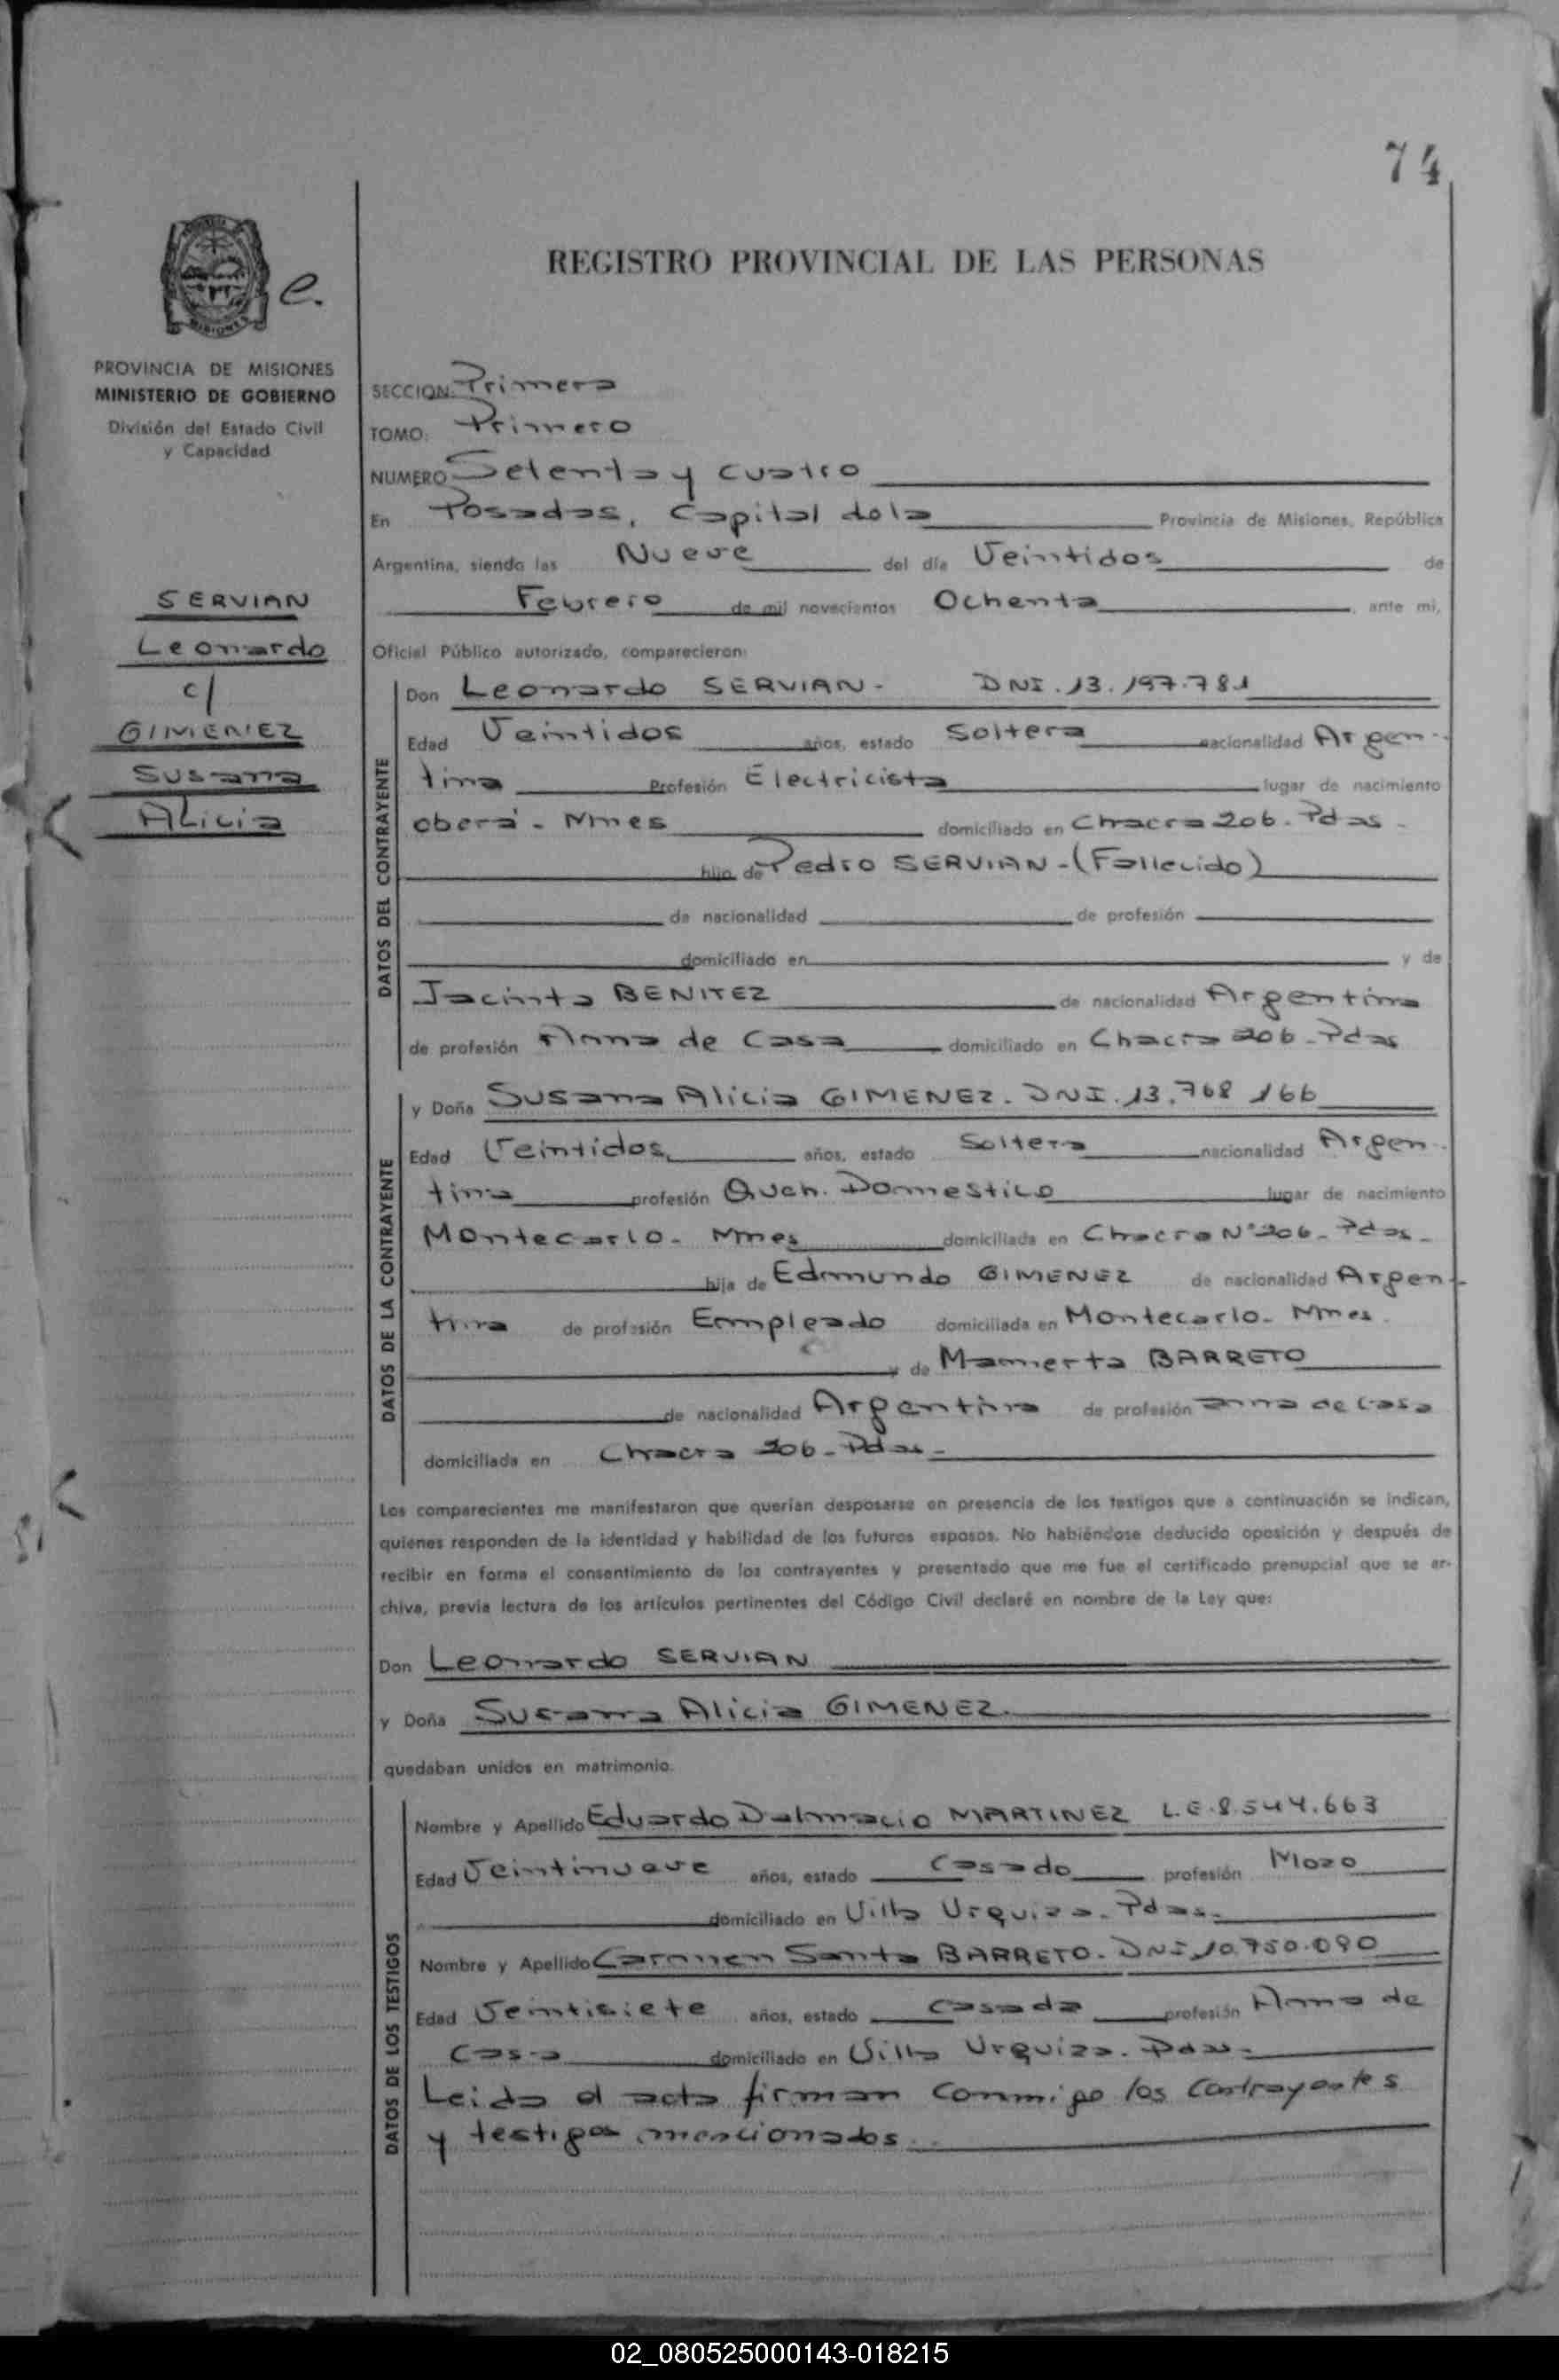 74
REGISTRO PROVINCIAL DE LAS PERSONAS
MISIONES
e.
PROVINCIA DE MISIONES
MINISTERIO DE GOBIERNO
División del Estado Civil
y Capacidad
SERVIAN
Leonardo
c/
GIMENEZ
Susana
Alicia
SECCION: Primera
TOMO: Primero
NUMERO Setenta y cuatro
En Posadas, Capital dela Provincia de Misiones, República
Argentina, siendo las Nueve del día Veintidos de
Febrero de mil novecientos Ochenta, ante mi,
Oficial Público autorizado, comparecieron:
DATOS DEL CONTRAYENTE
Don Leonardo SERVIAN - DNI. 13.197.781
Edad Veintidos años, estado Soltera nacionalidad Argen-
tina Profesión Electricista lugar de nacimiento
oberá - Mnes domiciliado en Chacra 206. Pdas -
hijo de Pedro SERVIAN - (Fallecido)
de nacionalidad de profesión
domiciliado en y de
Jacinta BENITEZ de nacionalidad Argentina
de profesión Ama de Casa domiciliado en Chacra 206 - Pdas
DATOS DE LA CONTRAYENTE
y Doña Susana Alicia GIMENEZ. DNI. 13.768 166
Edad Veintidos años, estado Soltera nacionalidad Argen-
tina profesión Queh. Domestico lugar de nacimiento
Montecarlo - Mnes domiciliada en Chacra N° 206 - Pdas -
hija de Edmundo GIMENEZ de nacionalidad Argen-
tina de profesión Empleado domiciliada en Montecarlo - Mnes.
y de Mamerta BARRETO
de nacionalidad Argentina de profesión ama de Casa
domiciliada en Chacra 206 - Pdas -
Los comparecientes me manifestaron que querían desposarse en presencia de los testigos que a continuación se indican,
quienes responden de la identidad y habilidad de los futuros esposos. No habiéndose deducido oposición y después de
recibir en forma el consentimiento de los contrayentes y presentado que me fue el certificado prenupcial que se ar-
chiva, previa lectura de los artículos pertinentes del Código Civil declaré en nombre de la Ley que:
Don Leonardo SERVIAN
y Doña Susana Alicia GIMENEZ.
quedaban unidos en matrimonio.
DATOS DE LOS TESTIGOS
Nombre y Apellido Eduardo Dalmacio MARTINEZ L.E. 8.544.663
Edad Veintinueve años, estado Casado profesión Mozo
domiciliado en Villa Urquiza - Pdas -
Nombre y Apellido Carmen Santa BARRETO - DNI 10.750.090
Edad Veintisiete años, estado Casada profesión Ama de
Casa domiciliado en Villa Urquiza - Pdas -
Leida el acta firman conmigo los Contrayentes
y testigos mencionados.
02_080525000143-018215